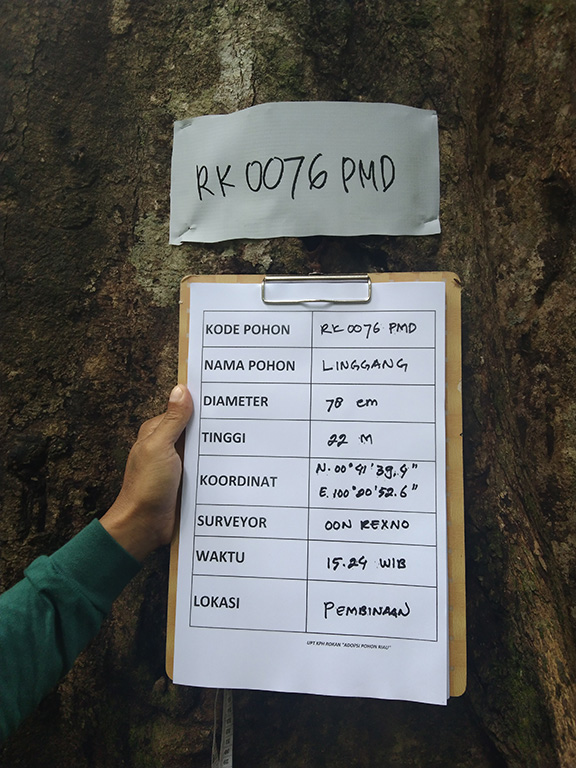 RK 0076 PMD
KODE POHON RK 0076 PMD
NAMA POHON LINGGANG
DIAMETER 78 cm
TINGGI 22 M
KOORDINAT N. 00°41'39,4"
E. 100°20'52.6"
SURVEYOR OON REXNO
WAKTU 15.24 WIB
LOKASI PEMBINAAN
UPT KPH ROKAN "ADOPSI POHON RIAU"